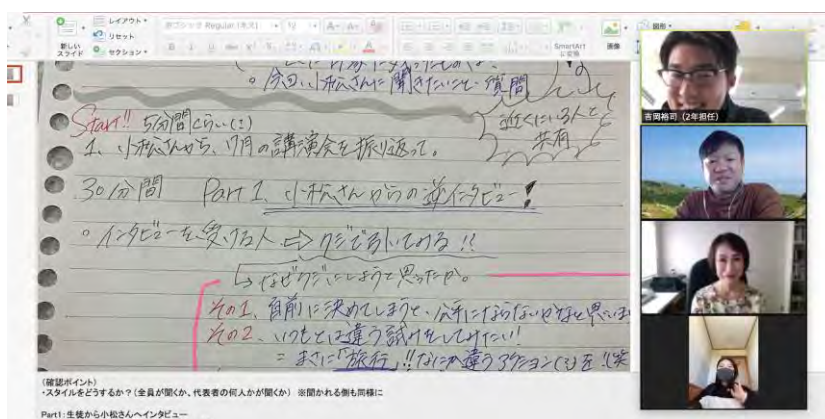 レイアウト
リセット
新しい
スライド
セクション
SmartArt
に変換
画像
図形
今回、小松さんに聞きたいこと、質問
近くにいる人と
共有
Start!! 5分間くらい(?)
1、小松さんから、7月の講演会を振り返って。
30分間 Part 1、小松さんからの逆インタビュー!
インタビューを受ける人 ⇨ クジで引いてみる!!
↳なぜクジにしようと思ったか。
その1、自前に決めてしまうと、公平にならないかなと思い
その2、いつもとは違う試みをしてみたい!!
= まさに「旅行」!! なにか違うアクション(?)を
吉岡裕司(2年担任)
(確認ポイント)
・スタイルをどうするか?(全員が聞くか、代表者の何人かが聞くか) ※聞かれる側も同様に
Part1: 生徒から小松さんへインタビュー